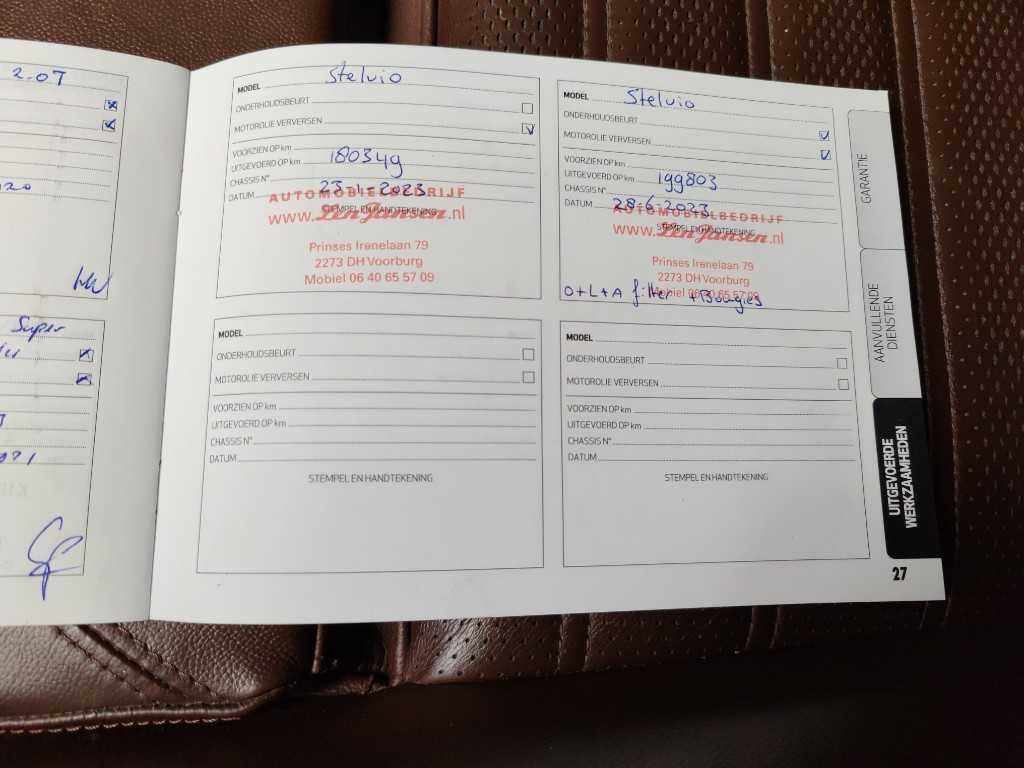 2.0T
Super
MODEL Stelvio
ONDERHOUDSBEURT
MOTOROLIE VERVERSEN
VOORZIEN OP km
UITGEVOERD OP km 180349
CHASSIS N°
DATUM 23-1-2023
AUTOMOBIELBEDRIJF
STEMPEL EN HANDTEKENING
www.Len Jansen.nl
Prinses Irenelaan 79
2273 DH Voorburg
Mobiel 06 40 65 57 09
MODEL Stelvio
ONDERHOUDSBEURT
MOTOROLIE VERVERSEN
VOORZIEN OP km
UITGEVOERD OP km 199803
CHASSIS N°
DATUM 28-6-2023
AUTOMOBIELBEDRIJF
STEMPEL EN HANDTEKENING
www.Len Jansen.nl
Prinses Irenelaan 79
2273 DH Voorburg
Mobiel 06 40 65 57 09
O+L+A filter + Bougies
MODEL
ONDERHOUDSBEURT
MOTOROLIE VERVERSEN
VOORZIEN OP km
UITGEVOERD OP km
CHASSIS N°
DATUM
STEMPEL EN HANDTEKENING
MODEL
ONDERHOUDSBEURT
MOTOROLIE VERVERSEN
VOORZIEN OP km
UITGEVOERD OP km
CHASSIS N°
DATUM
STEMPEL EN HANDTEKENING
GARANTIE
AANVULLENDE
DIENSTEN
UITGEVOERDE
WERKZAAMHEDEN
27